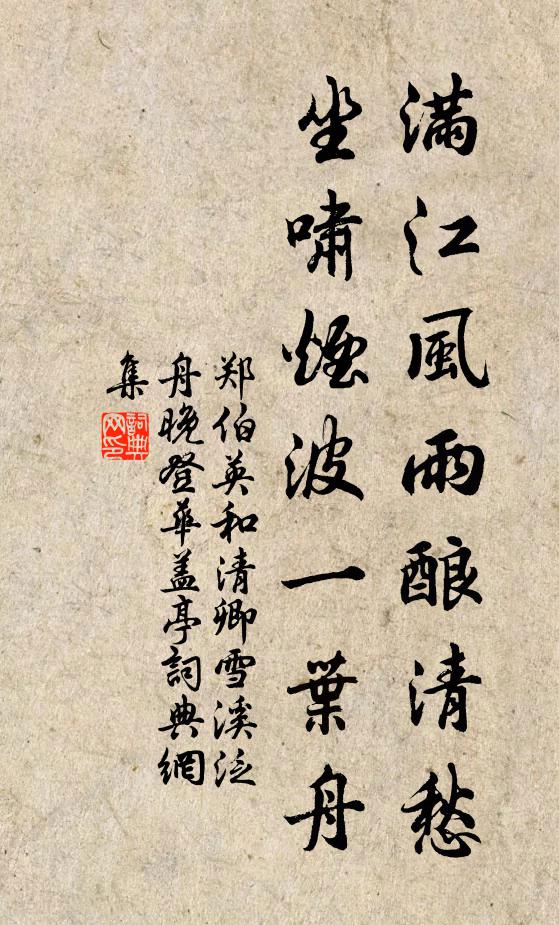 满江風雨酿清愁
坐嘯煙波一葉舟
郑伯英和清卿雪溪泛
舟晚登華盖亭詞典網
集
詞典
网印